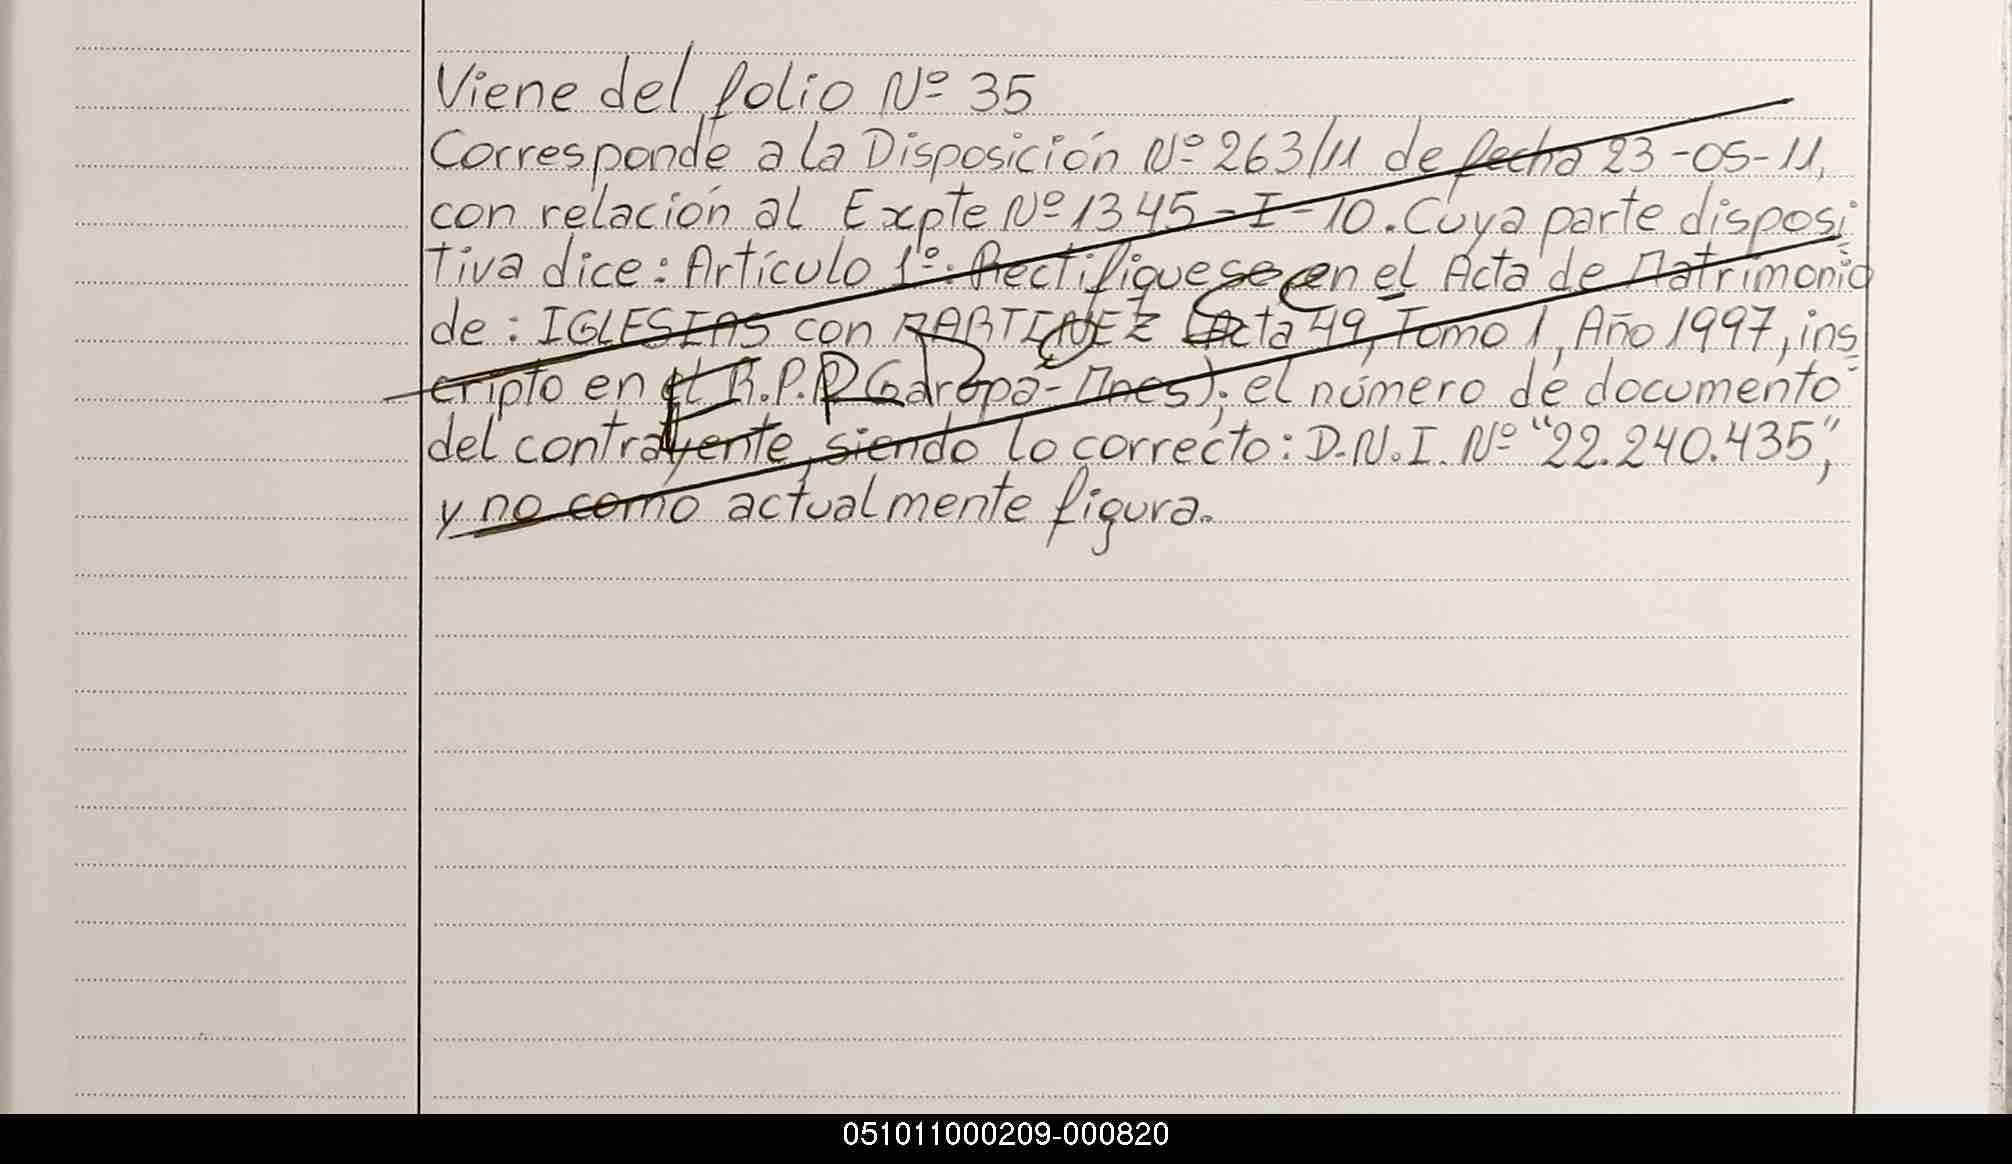 Viene del folio Nº 35
Corresponde a la Disposición Nº 263/11 de fecha 23-05-11,
con relación al Expte Nº 1345-I-10. Cuya parte disposi
tiva dice: Artículo 1º: Rectifiquese en el Acta de Matrimonio
de: IGLESIAS con MARTINEZ (Acta 49, Tomo 1, Año 1997, ins
cripto en el R.P.P Garupa-Mnes); el número de documento
del contrayente, siendo lo correcto: D.N.I. Nº "22.240.435",
y no como actualmente figura.
051011000209-000820